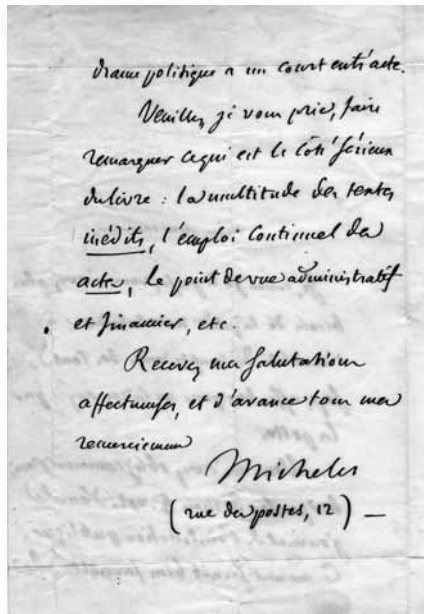 drame politique a un court entr'acte.
Veuillez, je vous prie, faire
remarquer ce qui est le côté sérieux
du livre : la multitude des textes
inédits, l'emploi continuel des
actes, le point de vue administratif
et financier, etc.
Recevez mes salutations
affectueuses, et d'avance tous mes
remerciemens
Michelet
(rue des postes, 12) —